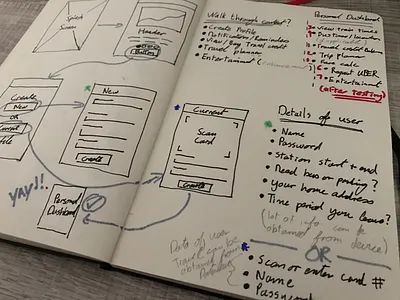 Splash
Screen
Header
Button
Button
Create
New
OR
Current
file
New
Create
YAY!!
Personal
Dashboard
Current
Scan
Card
Create
Data of user
Travel can be
obtained from
Walk through content?
Create Profile
Notification/Reminders
View/Buy Travel credit
Travel planner
Entertainment
Personal Dashboard
View train times
Trip Planner
Fare calc
Report UBER
Entertainment
(after testing)
Details of user
Name
Password
station start + end
Need bus or parking?
your home address
Time period you leave?
(lot of info can be
obtained from device)
OR
scan or enter card #
Name
Password